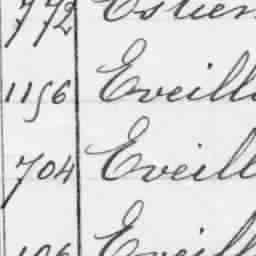 772 Estien
1156 Eveill
704 Eveill
Eveill